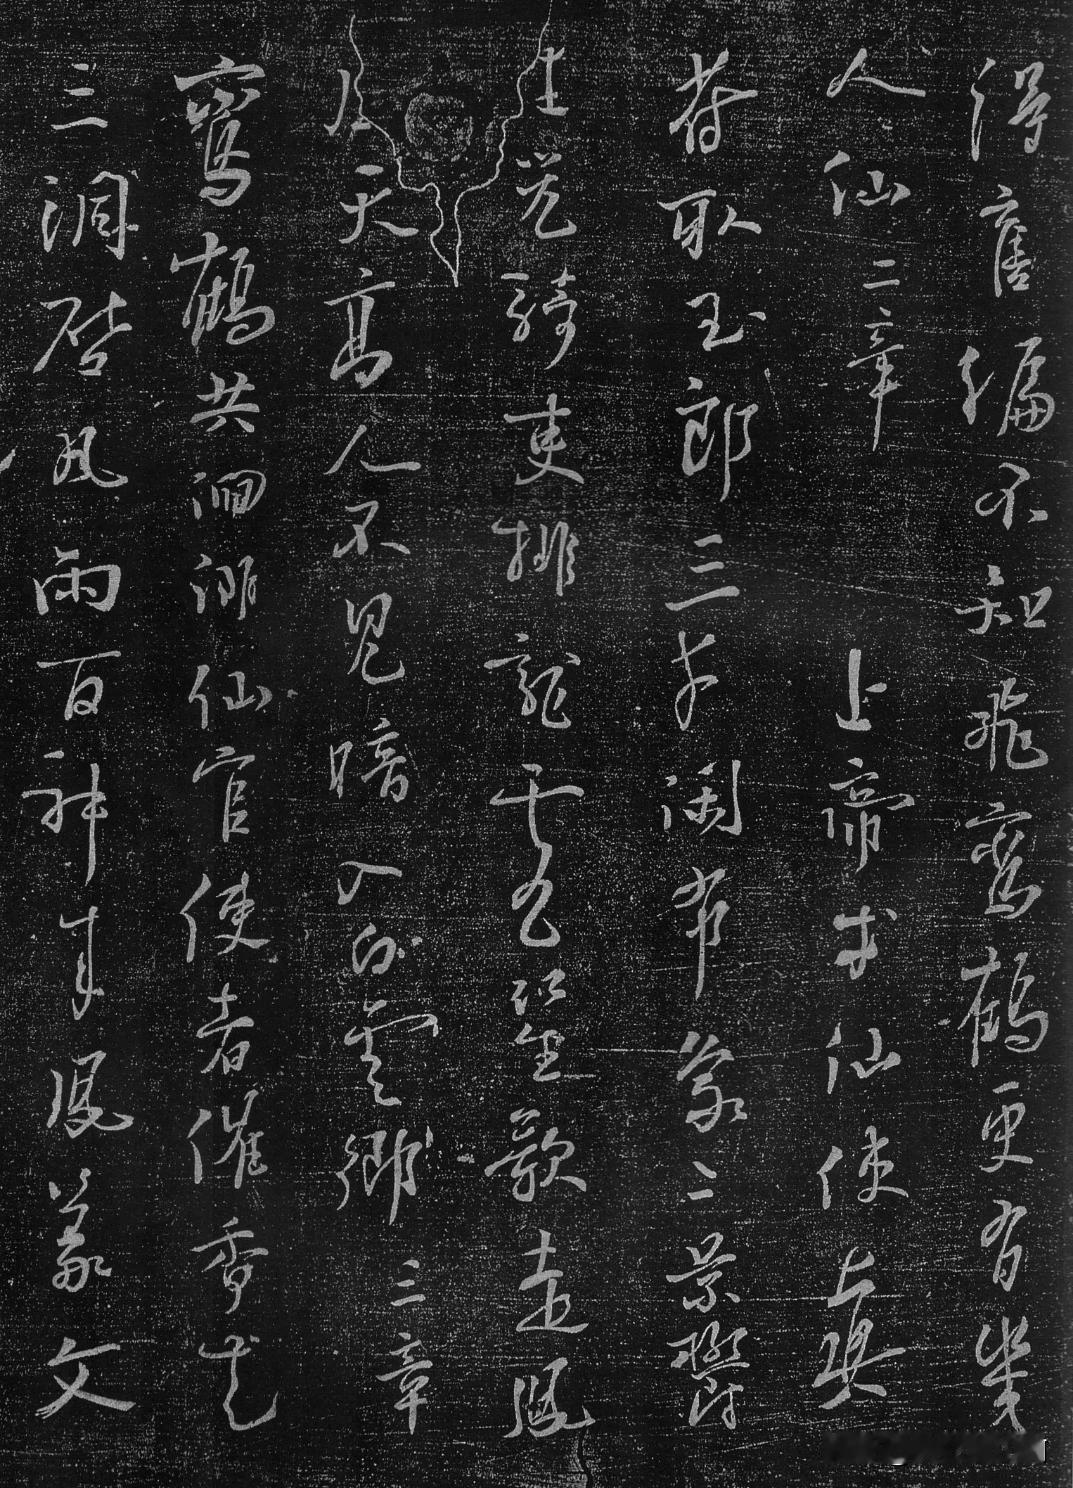 得舊編不知飛鸞鶴更有幾
人仙二章　上帝求仙使真
符取玉郎三才閑布象二景鬱
生光騎吏排龍虎笙歌走鳳
凰天高人不見暗入白雲鄉三章
鸞鶴共徊翔仙官使者催香花
三洞啓風雨百神來鳳篆文